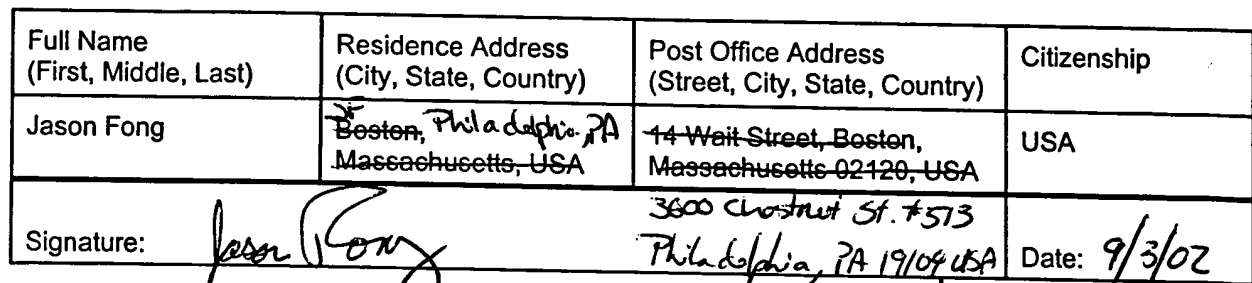 Full Name
(First, Middle, Last)
Residence Address
(City, State, Country)
Post Office Address
(Street, City, State, Country)
Citizenship
Jason Fong
Boston, Philadelphia, PA
Massachusetts, USA
14 Wait Street, Boston,
Massachusetts 02120, USA
USA
Signature: Jason Fong
3600 Chestnut St. #573
Philadelphia, PA 19104 USA
Date: 9/3/02